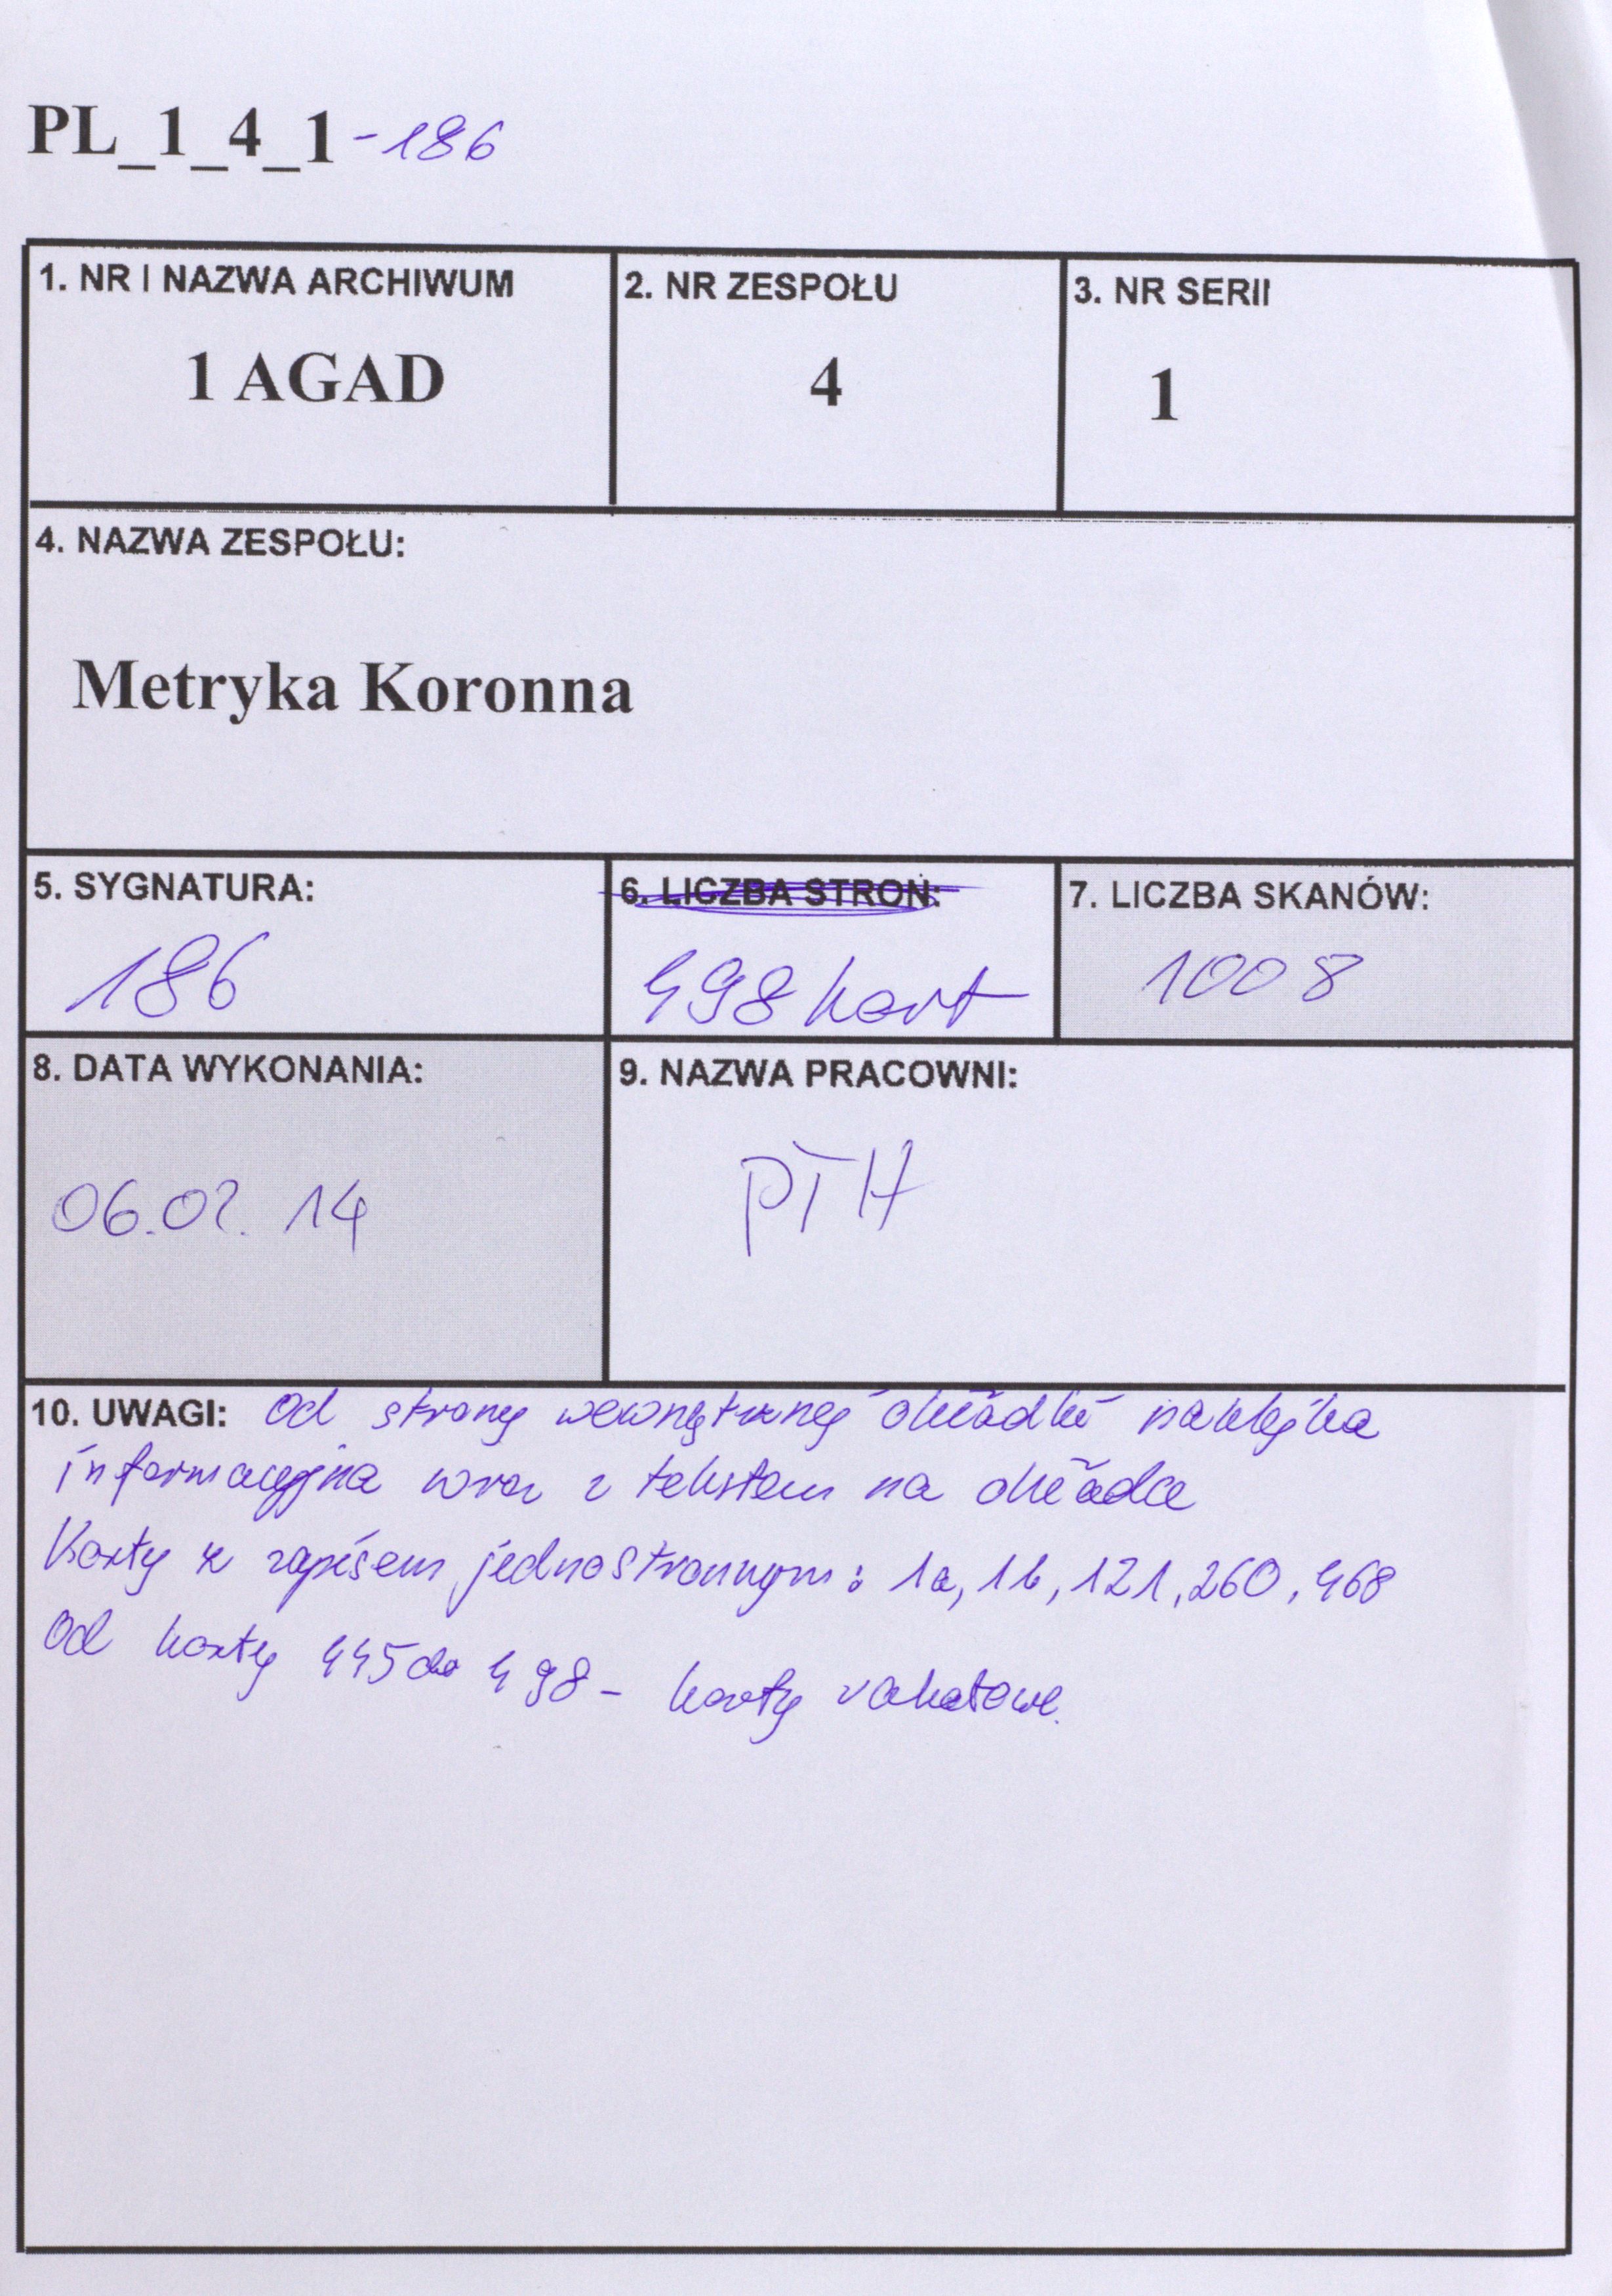 PL_1_4_1 - 186
1. NR I NAZWA ARCHIWUM
1 AGAD
2. NR ZESPOŁU
4
3. NR SERII
1
4. NAZWA ZESPOŁU:
Metryka Koronna
5. SYGNATURA:
186
6. LICZBA STRON:
498 kart
7. LICZBA SKANÓW:
1008
8. DATA WYKONANIA:
06.02.14
9. NAZWA PRACOWNI:
PTH
10. UWAGI: Od strony wewnętrznej okładki naklejka
informacyjna wraz z tekstem na okładce
Karty z zapisem jednostronnym: 1a, 1b, 121, 260, 468
Od karty 445 do 498 - karty vakatowe.